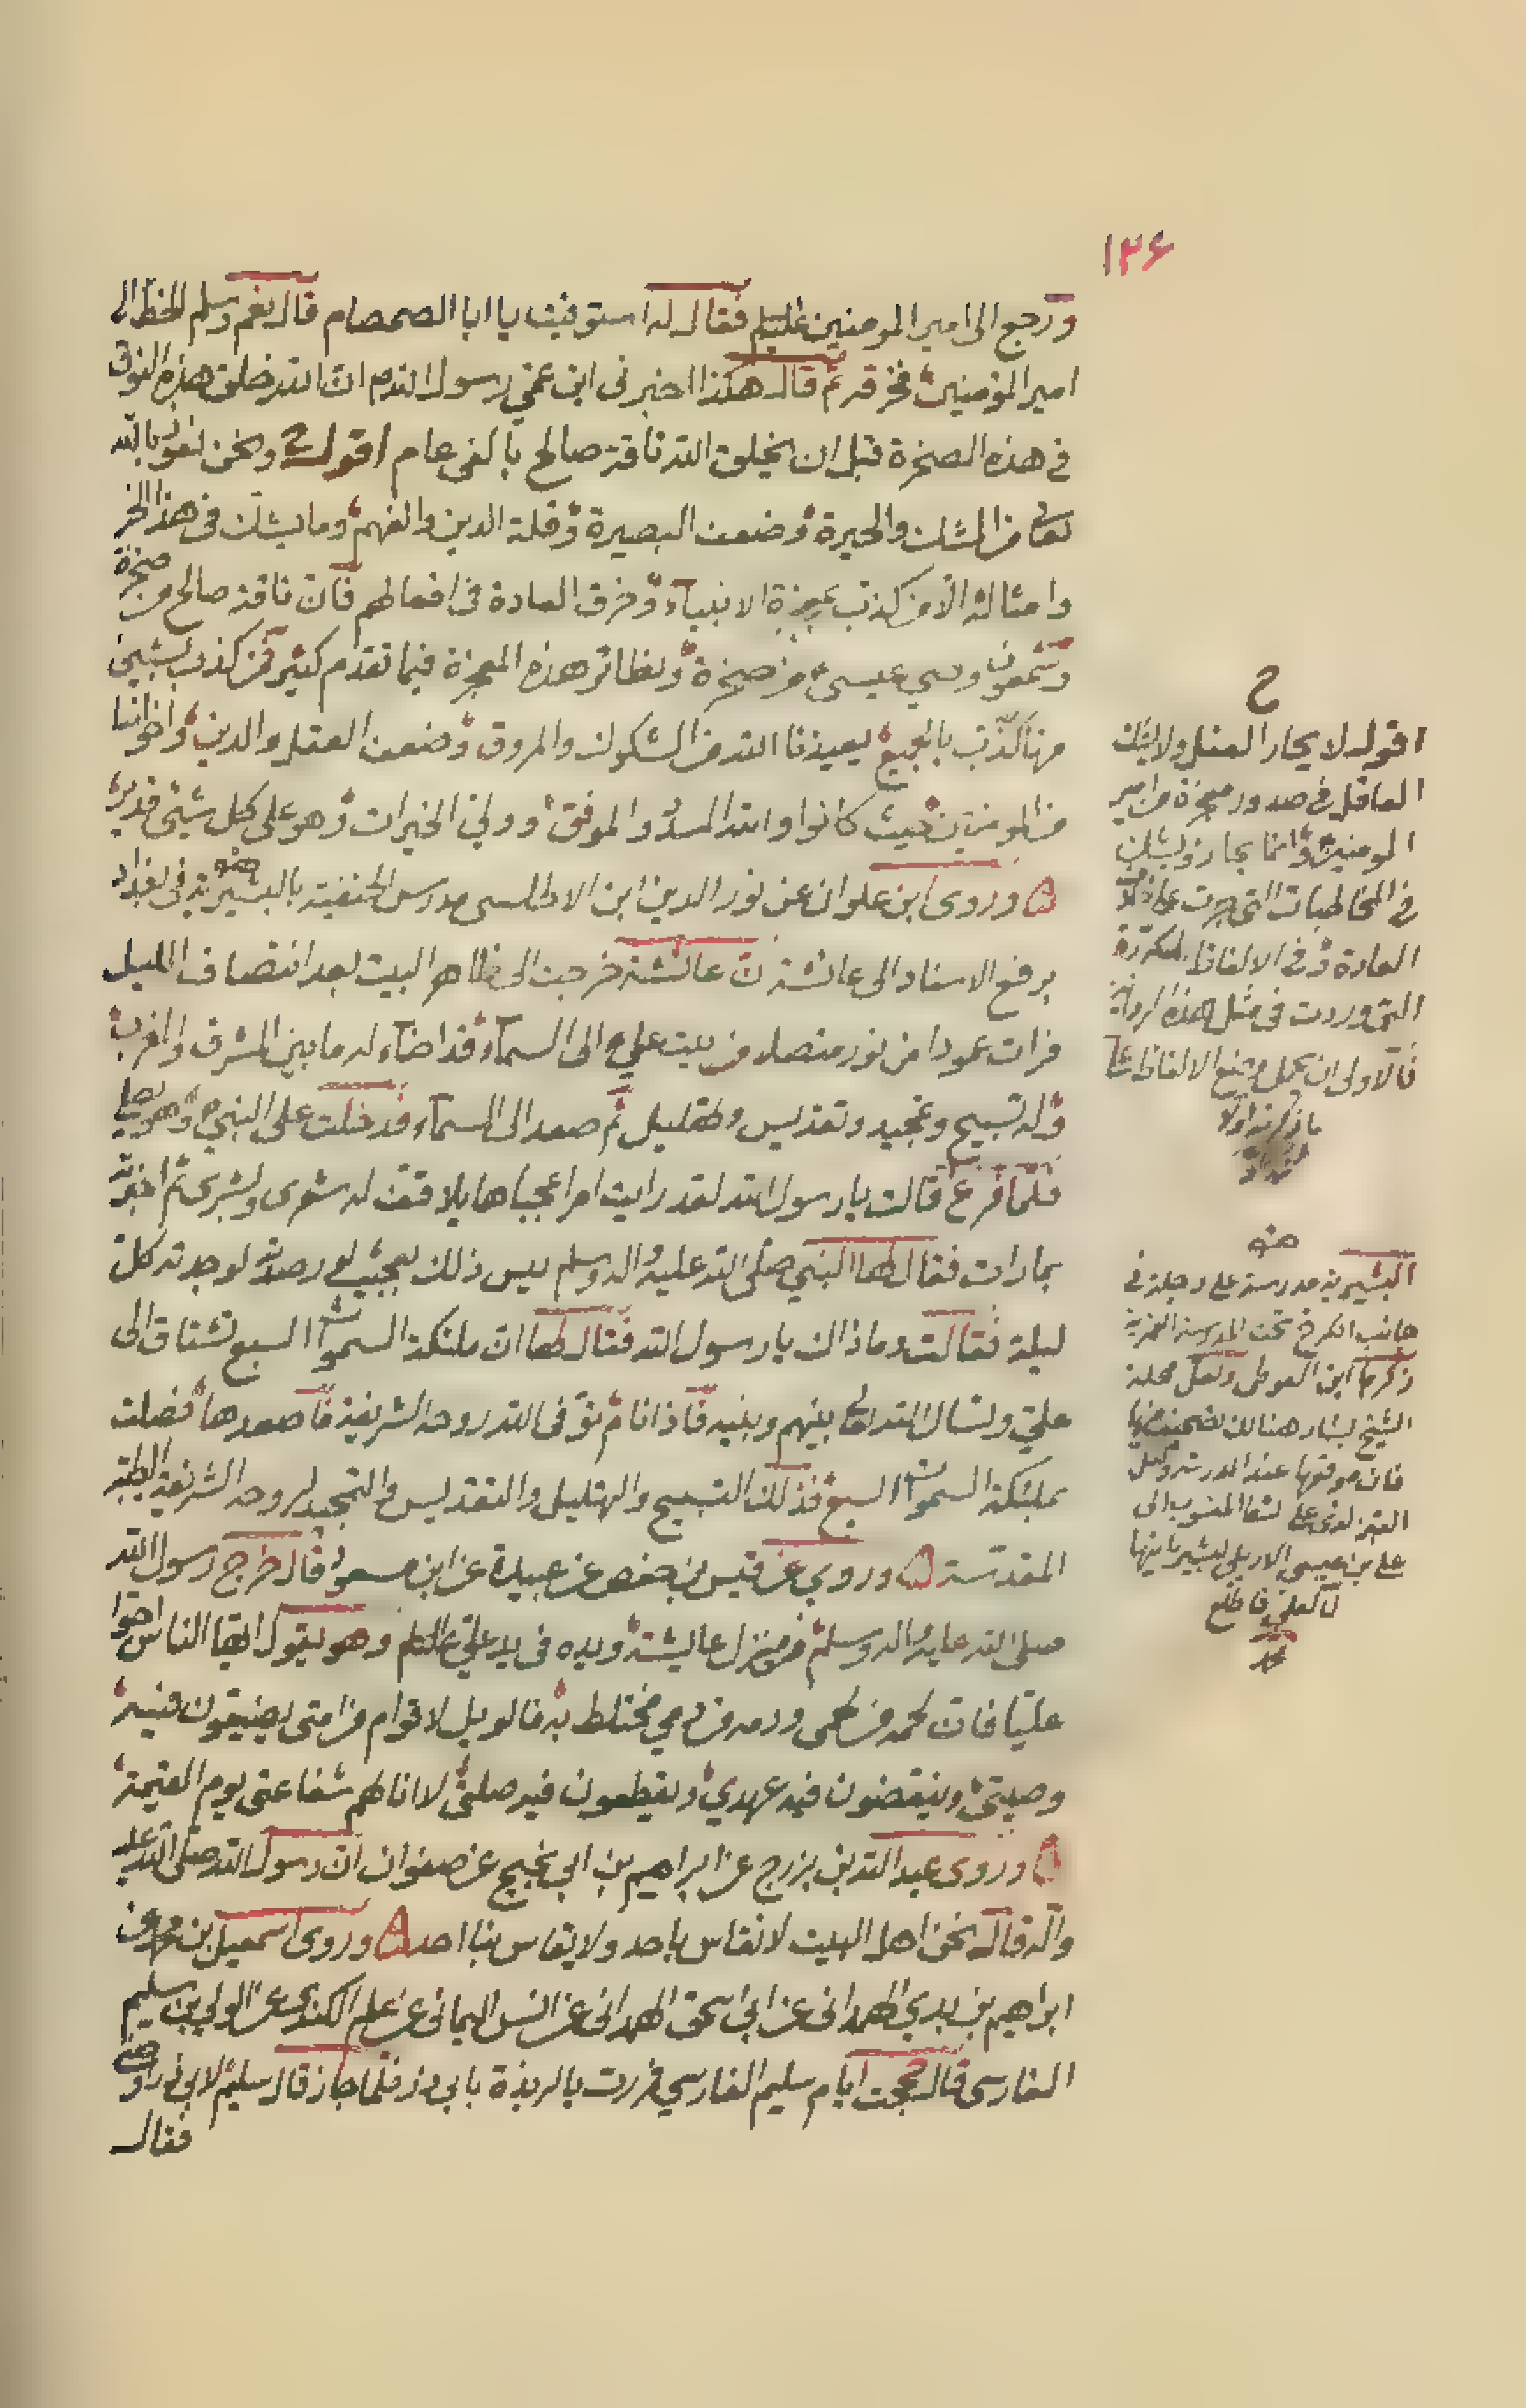 ١٢۶
ورجع الى امير المومنين عليهم فقال له استوفيت يا ابا الصمصام قال نعم وسلم الخط الى
امير المؤمنين فخرقه ثم قال هكذا اخبرنى ابن عمي رسول الله م ان الله خلق هذه النوق
فى هذه الصخرة قبل ان يخلق الله ناقة صالح بالفى عام اقول ونحن نعوذ بالله
تعالى من الشك والحيرة وضعف البصيرة وقلة الدين والفهم وما يشك فى هذا الخبر
وامثاله الا من كذب بمعجزة الانبياء وخرق العادة فى افعالهم فان ناقة صالح من صخرة
وشمعون وصي عيسى من صخرة ونظائر هذه المعجزة فيما تقدم كثير فمن كذب بشيئ
منها كذب بالجميع يعيذنا الله من الشكوك والمروق وضعف العقل والدين واخواننا
من المومنين حيث كانوا والله المسدد والموفق وولي الخيرات وهو على كل شيئ قدير
وروى ابن علوان عن نور الدين ابن الاطلسى مدرس الحنفية بالبشيرية فى بغداد
برفع الاسناد الى عائشة ان عائشة خرجت الى ظاهر البيت بعد انتصاف الليل
فرات عمودا من نور متصلا من بيت علي الى السماء قد اضاء له ما بين المشرق والمغرب
وله تسبيح وتمجيد وتقديس وتهليل ثم صعد الى السماء فدخلت على النبي وهو يصلي
فلما فرغ قالت يا رسول الله لقد رايت امرا عجبا هايلا قفت له شعرى وبشرى ثم اخبرته
بما رات فقال لها النبي صلى الله عليه واله وسلم ليس ذلك بعجيب لو رصدته لوجدته كل
ليلة فقالت وما ذاك يا رسول الله فقال لها ان ملئكة السموات السبع تشتاق الى
علي وتسال الله بينهم وبينه فاذا نام توفى الله روحه الشريفة فاصعدها فضلت
بملئكة السموات السبع فذلك التسبيح والهتليل والتقديس والتمجيد لروحه الشريفة الطيبة
المقدسة وروي عن قيس بن حفص عن عبيدة عن ابن مسعود قال خرج رسول الله
صلى الله عليه واله وسلم من منزل عايشة ويده فى يد علي وهو يقول ايها الناس احبوا
عليا فان لحمه من لحمى ودمه من دمي مختلط به فالويل لاقوام من امتى يضيعون فيه
وصيتى وينقضون فيه عهدي ويقطعون فيه صلتى لا انالهم شفاعتى يوم القيمة
وروى عبد الله بن بزرج عن ابراهيم بن ابي نجيح عن صفوان ان رسول الله صلى الله عليه
واله قال نحن اهل البيت لا نقاس باحد ولا يقاس بنا احد وروى اسمعيل بن عن
ابراهيم بن الهمدانى عن ابى اسحق الهمدانى عن انس اليمانى عن الكندى عن سليم
الفارسى قال حججت ايام سليم الفارسي فمررت بالربذة بابى ذر فلما جاز قال سليم لابى ذر
فقال
اقول لا يحار العقل ولا يشك
العاقل فى صدور معجزة من امير
المومنين وانما يحار ويشك
فى المخاطبات التى جرت على
العادة وفى الالفاظ المكررة
التى وردت فى مثل هذه الرواية
فالاولى ان يحمل وضع الالفاظ على
ما ذكرته اولا
منه
البشيرية مدرسة على دجلة فى
جانب الكرخ تحت المدرسة
ذكرها ابن الفوطى ولعل محلة
الشيخ بشار هنالك تصحيف منها
فان موقعها عند المدرسة ولعل
القبر لذى على المنسوب الى
على بن عيسى الاربلى لبشير بانيها
لا لعلي فاطلع